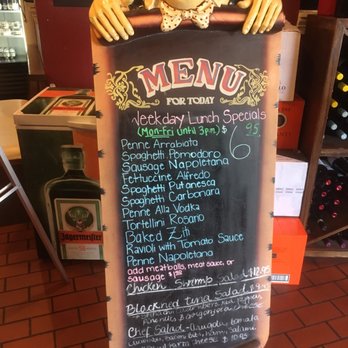 MENU
FOR TODAY
Weekday Lunch Specials
(Mon-Fri until 3pm) $6.95
Penne Arrabiata
Spaghetti Pomodoro
Sausage Napoletana
Fettuccine Alfredo
Spaghetti Putanesca
Spaghetti Carbonara
Penne Alla Vodka
Tortellini Rosano
Baked Ziti
Ravioli with Tomato Sauce
Penne Napoletana
add meatballs, meat sauce, or
sausage $1.95
Chicken Shrimp salad $12.95
Blackned tuna Salad
Chef Salad - Avocado, tomato
$10.95
Jägermeister